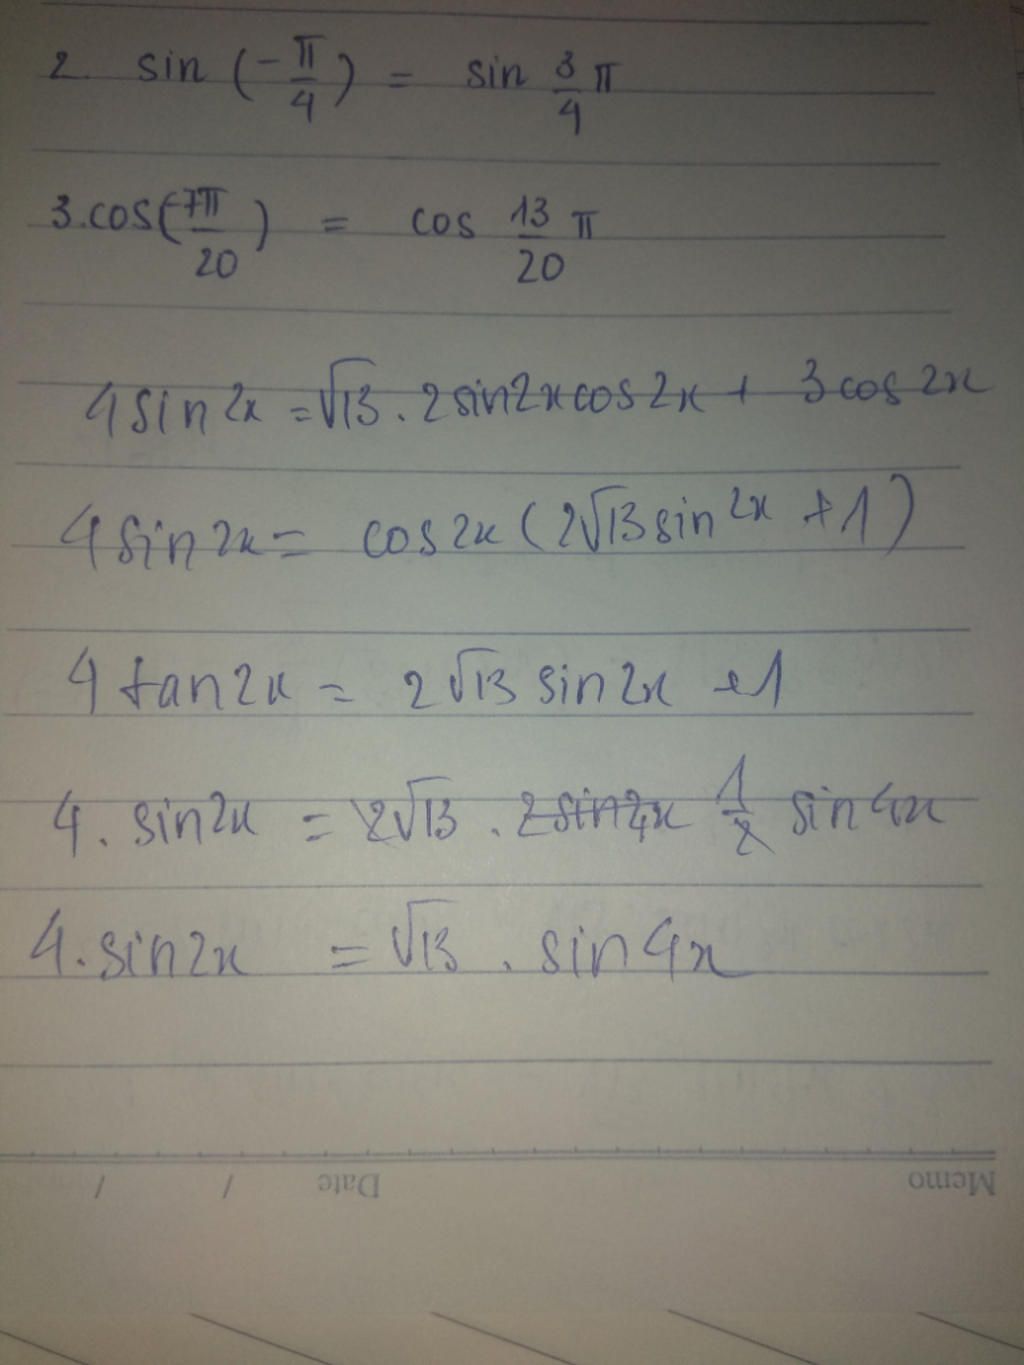 2. sin (-π/4) = sin 3/4 π
3. cos(-7π/20) = cos 13/20 π
4 sin 2x = √13 . 2 sin2x cos 2x + 3 cos 2x
4 sin 2x = cos 2x (2√13 sin 2x + 1)
4 tan 2x = 2√13 sin 2x +1
4. sin 2x = 2√13 . 2 sin 4x 1/2 sin 4x
4. sin 2x = √13 . sin 4x
Memo Date / /